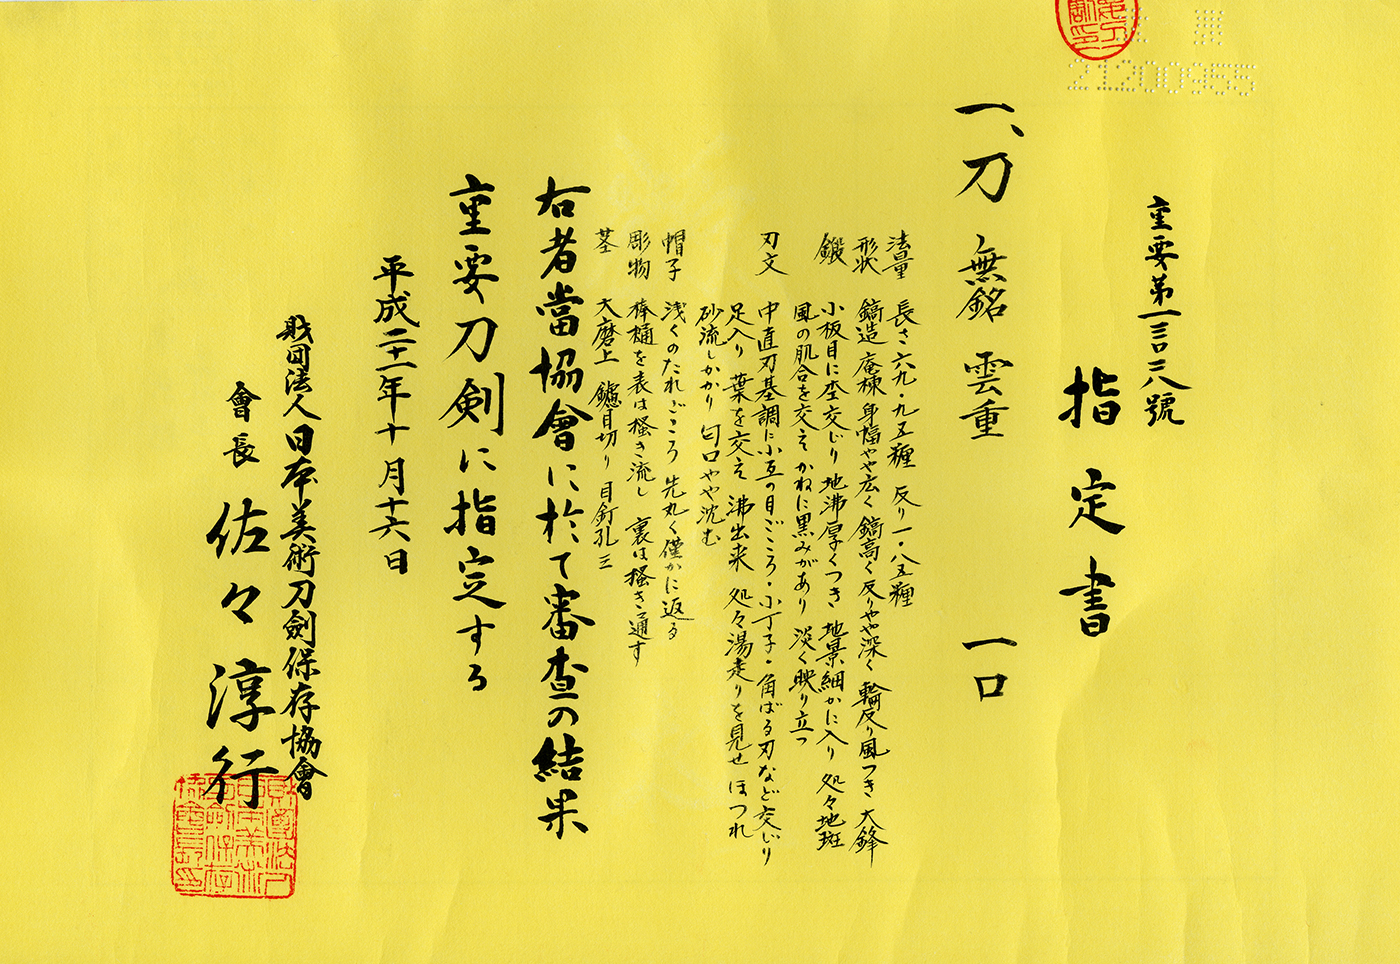 21200955
重要第一三〇二八號
指定書
一、刀 無銘 雲重 一口
法量 長さ六九・九五糎 反り一・八五糎
形状 鎬造 庵棟 身幅やや広く 鎬高く 反りやや深く 輪反り風つき 大鋒
鍛 小板目に杢交じり 地沸厚くつき 地景細かに入り 処々地斑
風の肌合を交え かねに黒みがあり 淡く映り立つ
刃文 中直刃基調に小互の目ごころ・小丁子・角ばる刃など交じり
足入り 葉を交え 沸出来 処々湯走りを見せ ほつれ
砂流しかかり 匂口やや沈む
帽子 浅くのたれごころ 先丸く僅かに返る
彫物 棒樋を表は掻き流し 裏は掻き通す
茎 大磨上 鑢目切り 目釘孔三
右者當協會に於て審査の結果
重要刀剣に指定する
平成二十一年十月十六日
財団法人日本美術刀劍保存協會
會長 佐々淳行